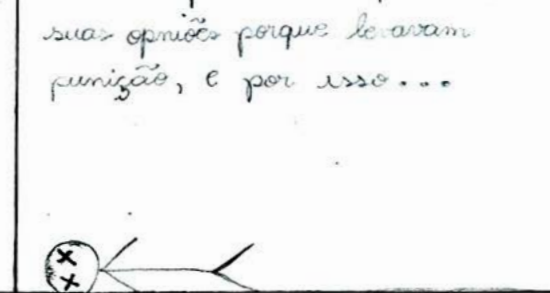 suas opniões porque levavam
punição, e por isso...